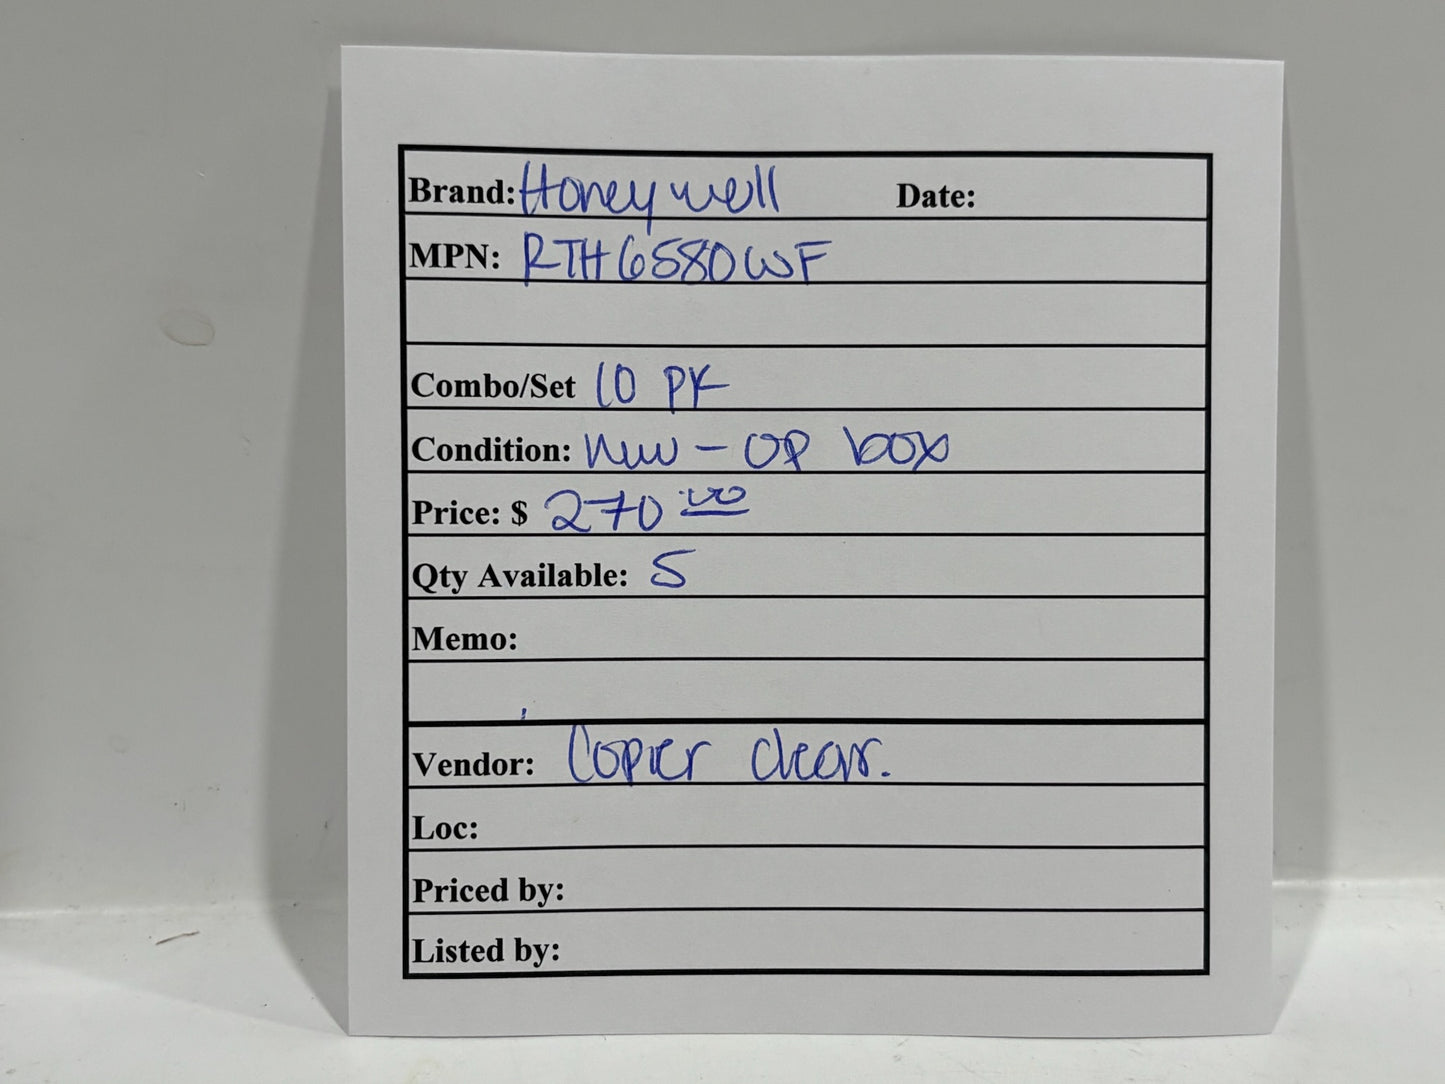 Brand: Honeywell Date:
MPN: RTH6580WF
Combo/Set 10 PK
Condition: New - OP box
Price: $ 270.00
Qty Available: 5
Memo:
Vendor: Copier clear.
Loc:
Priced by:
Listed by: